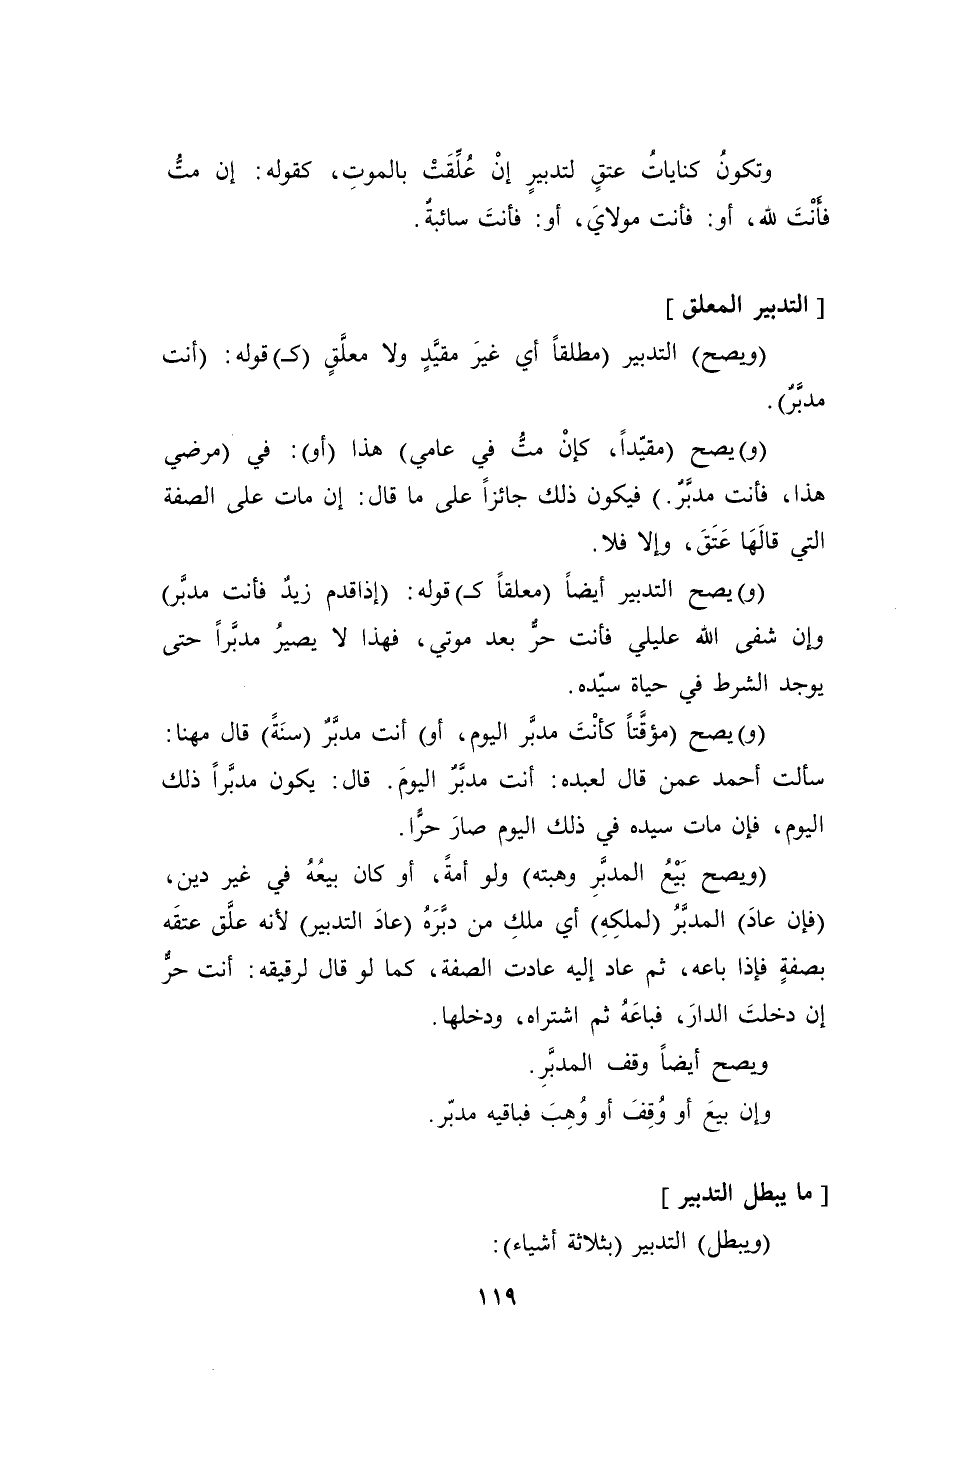 وتكونُ كناياتُ عتقٍ لتدبيرٍ إنْ عُلِّقَتْ بالموتِ، كقوله: إن متُّ
فأَنْتَ لله، أو: فأنت مولايَ، أو: فأنتَ سائبةٌ.
[ التدبير المعلق ]
(ويصح) التدبير (مطلقاً أي غيرَ مقيَّدٍ ولا معلَّقٍ (كـ) قوله: (أنت
مدبَّرٌ).
(و) يصح (مقيّداً، كإنْ متُّ في عامي) هذا (أو): في (مرضي
هذا، فأنت مدبَّرٌ.) فيكون ذلك جائزاً على ما قال: إن مات على الصفة
التي قالَهَا عَتَقَ، وإلا فلا.
(و) يصح التدبير أيضاً (معلقاً كـ) قوله: (إذاقدم زيدٌ فأنت مدبَّر)
وإن شفى الله عليلي فأنت حرٌّ بعد موتي، فهذا لا يصيرُ مدبَّراً حتى
يوجد الشرط في حياة سيّده.
(و) يصح (مؤقَّتاً كأنْتَ مدبَّر اليوم، أو) أنت مدبَّرٌ (سنَةً) قال مهنا:
سألت أحمد عمن قال لعبده: أنت مدبَّرٌ اليومَ. قال: يكون مدبَّراً ذلك
اليوم، فإن مات سيده في ذلك اليوم صارَ حرًّا.
(ويصح بَيْعُ المدبَّرِ وهبته) ولو أمةً، أو كان بيعُهُ في غير دين،
(فإن عادَ) المدبَّرُ (لملكِهِ) أي ملكِ من دبَّرَهُ (عادَ التدبير) لأنه علَّق عتقَه
بصفةٍ فإذا باعه، ثم عاد إليه عادت الصفة، كما لو قال لرقيقه: أنت حرٌّ
إن دخلتَ الدارَ، فباعَهُ ثم اشتراه، ودخلها.
ويصح أيضاً وقف المدبَّرِ.
وإن بيعَ أو وُقِفَ أو وُهِبَ فباقيه مدبّر.
[ ما يبطل التدبير ]
(ويبطل) التدبير (بثلاثة أشياء):
١١٩